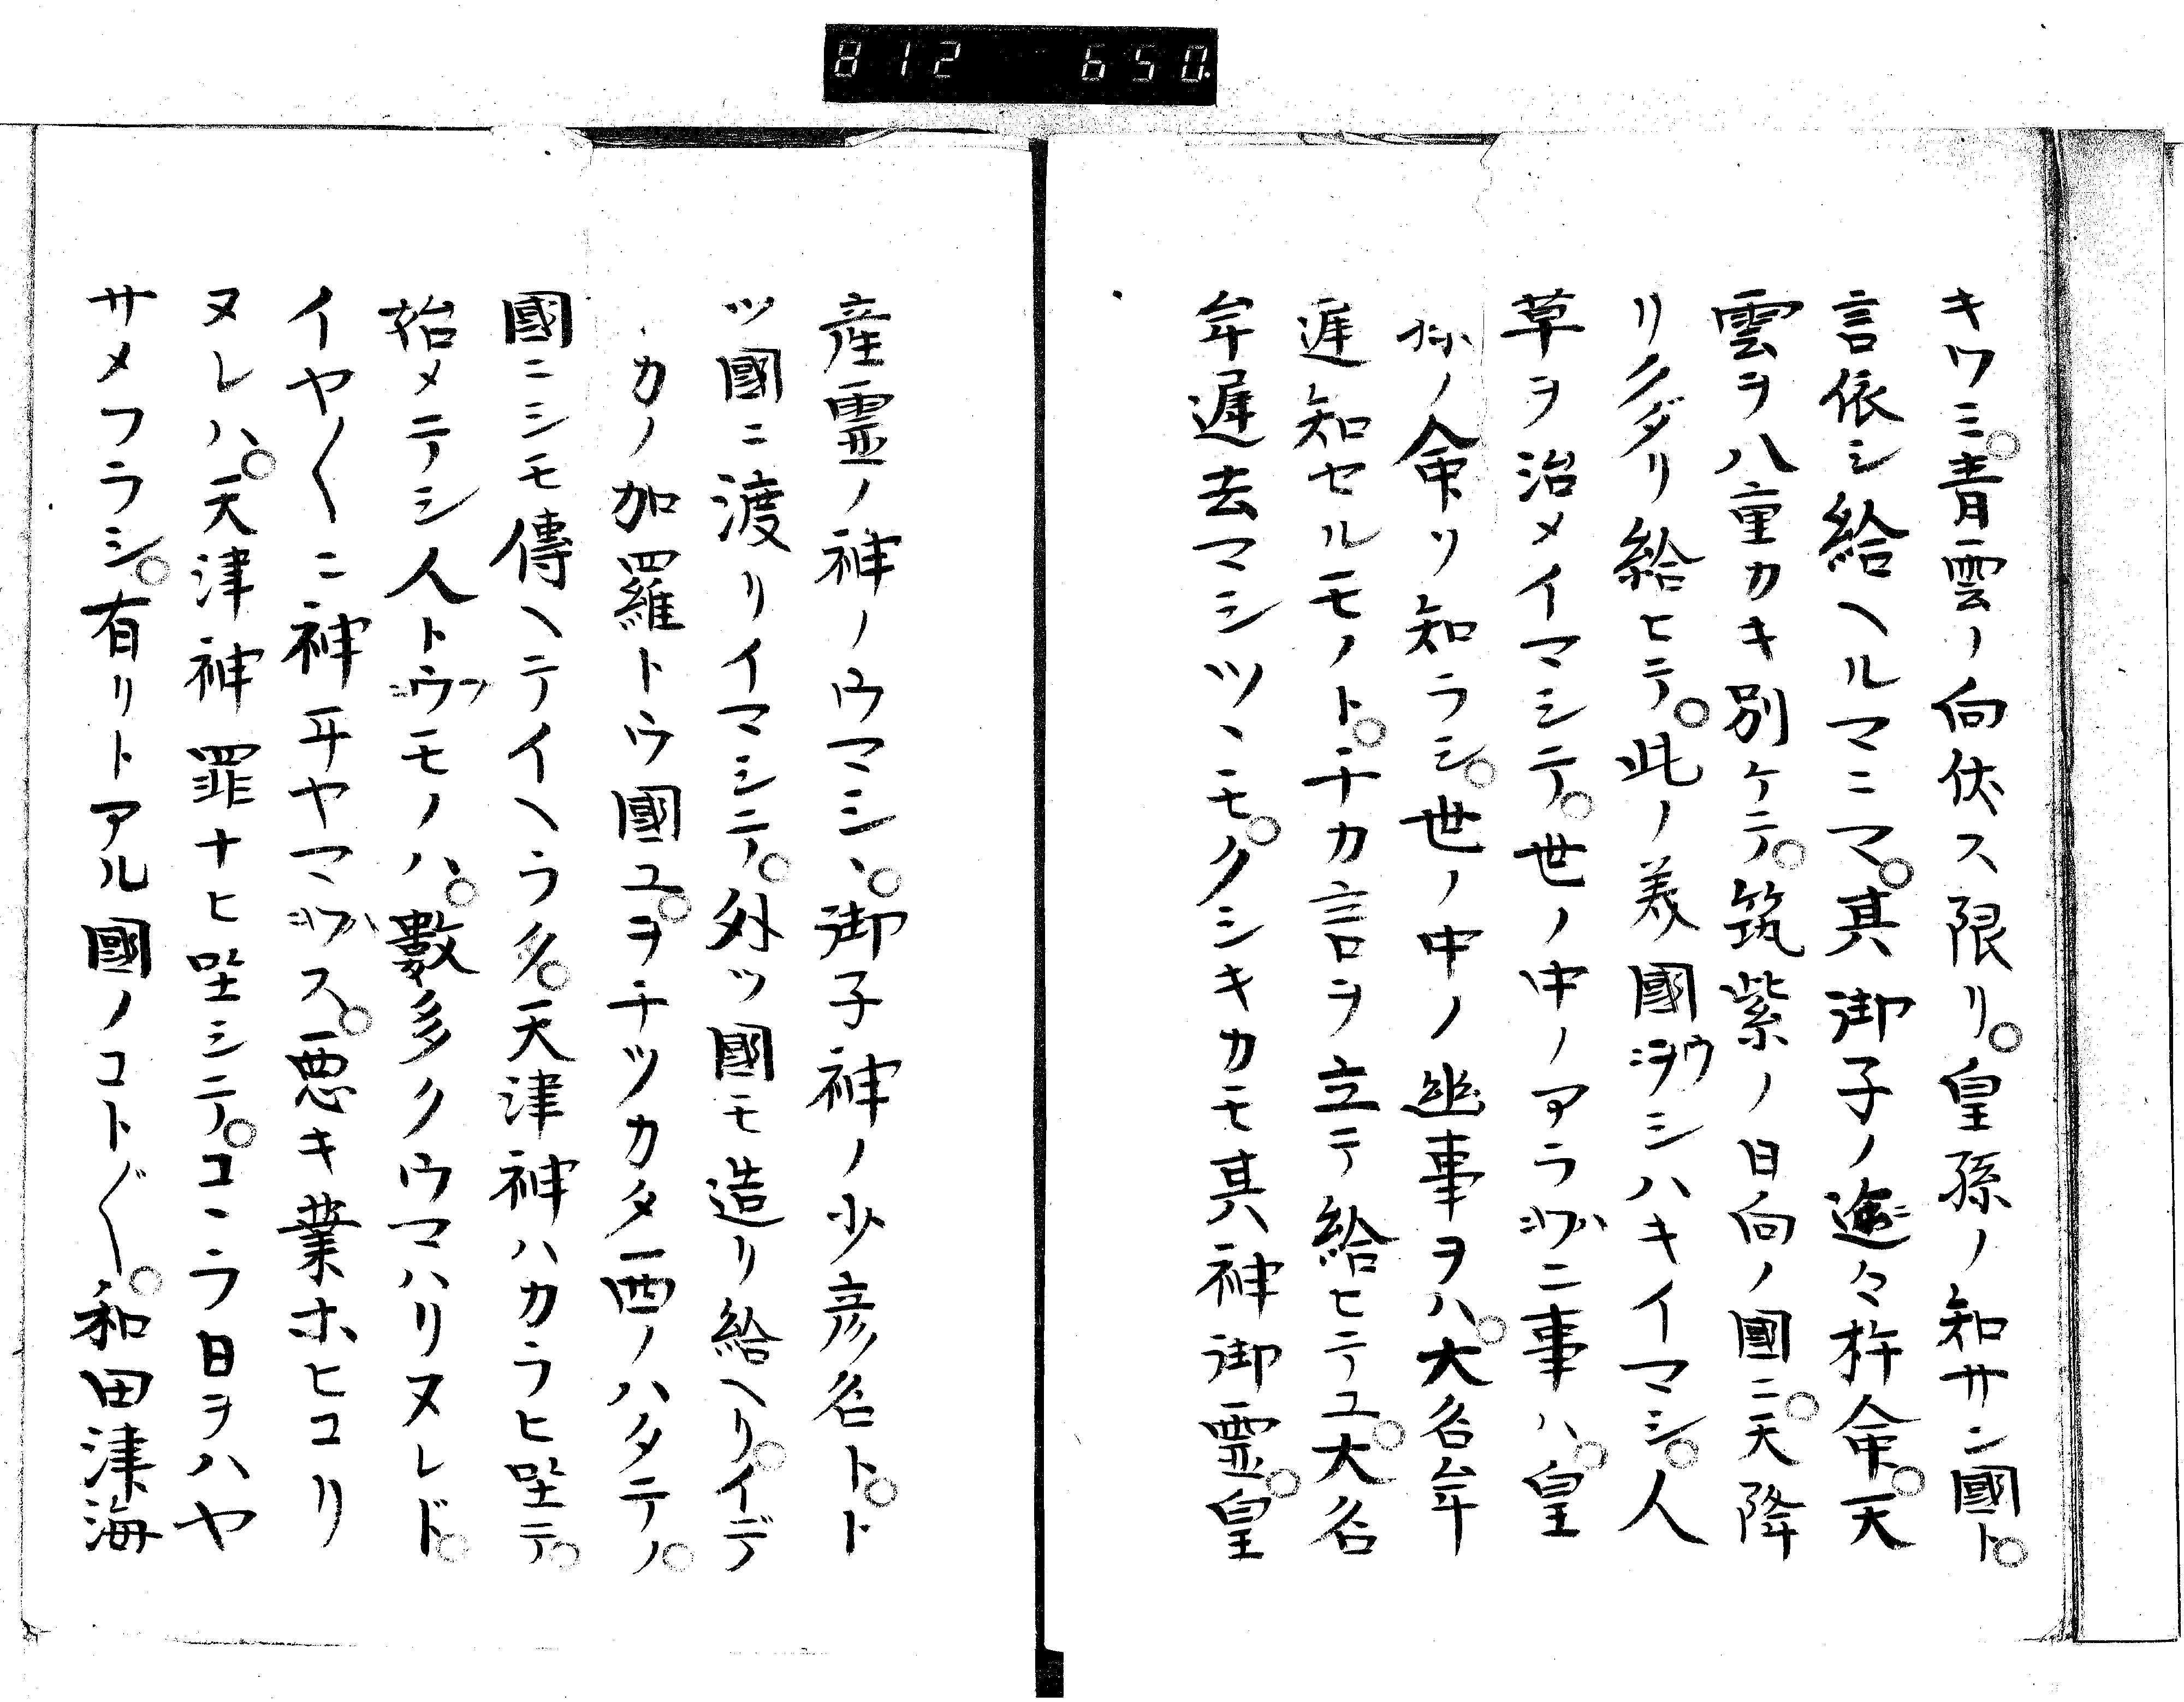 812 650.
キワミ。青雲ノ向伏ス限リ。皇孫ノ知サン國ト。
言依シ給ヘルマニマ。其御子ノ邇々杵命。天
雲ヲ八重カキ別ケテ。筑紫ノ日向ノ國ニ。天降
リクダリ給ヒテ。此ノ美國ヲウシハキイマシ。人
草ヲ治メイマシテ。世ノ中ノアラハニ事ハ。皇
孫ノ命ソ知ラシ。世ノ中ノ幽事ヲハ。大名牟
遅知セルモノト。チカ言ヲ立テ給ヒテユ。大名
牟遅去マシツヽモ。クシキカモ其神御霊。皇
産霊ノ神ノウマシヽ。御子神ノ少彦名ト。ト
ツ國ニ渡リイマシテ。外ツ國モ造リ給ヘリ。イデ
カノ加羅トウ國ユ。ヲチツカタ西ノハタテノ。
國ニシモ傳ヘテイヘラク。天津神ハカラヒ坐テ。
始メテシ人トウモノハ。數多クウマハリヌレド。
イヤ〳〵ニ神ヰヤマハス。悪キ業ホヒコリ
ヌレハ。天津神罪ナヒ坐シテ。コヽラ日ヲハヤ
サメフラシ。有リトアル國ノコト〴〵。和田津海